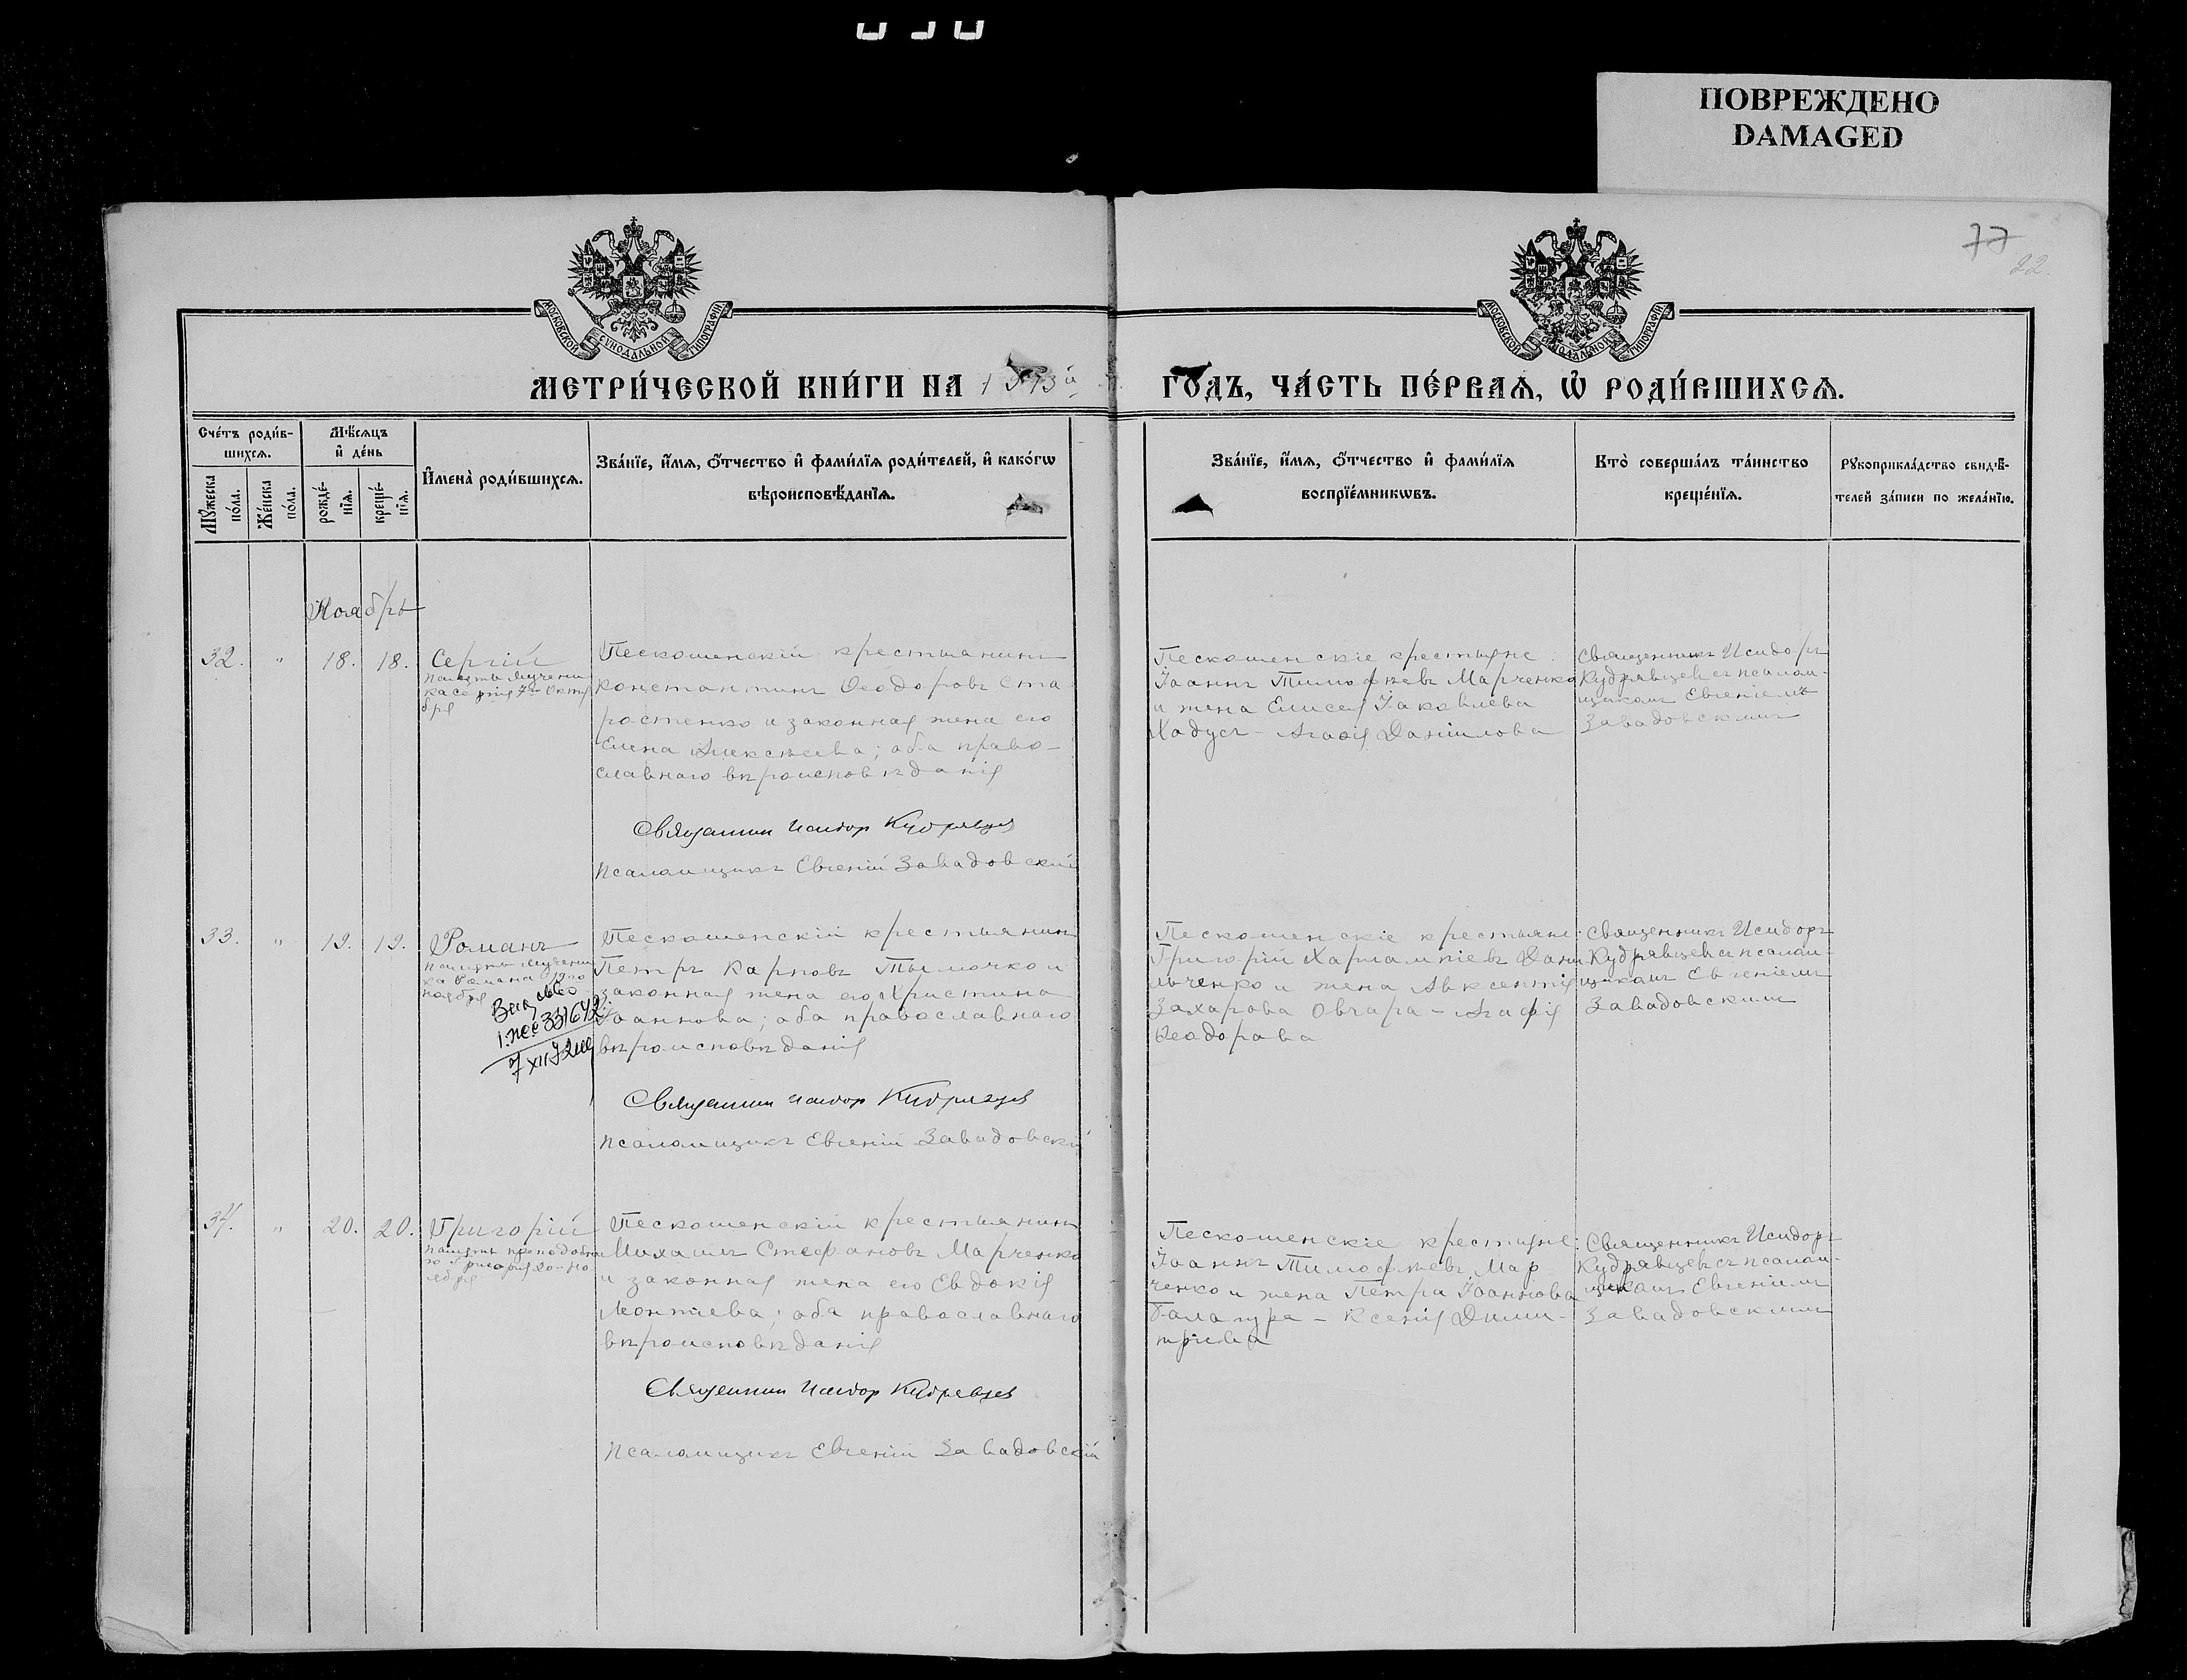 ПОВРЕЖДЕНО
DAMAGED
77
22.
МОСКОВСКОЙ СѴНОДАЛЬНОЙ ТИПОГРАФІИ.
МОСКОВСКОЙ СѴНОДАЛЬНОЙ ТИПОГРАФІИ.
МЕТРИ́ЧЕСКОЙ КНИ́ГИ НА 1913й
ГО́ДЪ, ЧА́СТЬ ПЕ́РВАѦ, Ѽ РОДИ́ВШИХСѦ.
Сче́тъ роди́в-
шихсѧ.
Мѣ́сѧцъ
и҆ де́нь
Мꙋ́жеска
по́ла.
Же́нска
по́ла.
рожде́-
нїѧ.
креще́-
нїѧ.
И҆мена̀ роди́вшихсѧ.
Зва́нїе, и҆́мѧ, ѻ҆́тчество и҆ фами́лїѧ роди́телей, и҆ како́гѡ
вѣроисповѣ́данїѧ.
Зва́нїе, и҆́мѧ, ѻ҆́тчество и҆ фами́лїѧ
воспрїе́мникѡвъ.
Кто̀ соверша́лъ та́инство
креще́нїѧ.
Рꙋкоприкла́дство свидѣ́-
телей за́писи по жела́нїю.
Ноябрь
32. " 18. 18. Сергій
память мучени
ка Сергія 7го Октя
бря
Пескошенскій крестьянинъ
Константинъ Ѳеодоровъ Ста
ростенко и законная жена его
Елена Алексѣева; оба право-
славнаго вѣроисповѣданія
Священник Исидор Кудрявцев
Псаломщикъ Евгеній Завадовскій
Пескошенскіе крестьяне:
Іоаннъ Тимофѣевъ Марченко
и жена Елисея Іаковлева
Ходусъ - Агафія Даніилова
Священникъ Исидоръ
Кудрявцевъ съ псалом-
щикомъ Евгеніемъ
Завадовскимъ
33. " 19. 19. Романъ
память мучени
ка Романа 19го
ноября
Пескошенскій крестьянинъ
Петръ Карповъ Тымочко и
законная жена его Христина
Іоаннова; оба православнаго
вѣроисповѣданія
Священник Исидор Кудрявцев
Псаломщикъ Евгеній Завадовскій
Пескошенскіе крестьяне:
Григорій Харлампіевъ Дани
льченко и жена Авксентія
Захарова Овчара - Агафія
Ѳеодорова
Священникъ Исидоръ
Кудрявцевъ съ псалом-
щикомъ Евгеніемъ
Завадовскимъ
34. " 20. 20. Григорій
память преподобна
го Григорія 20го но
ября
Пескошенскій крестьянинъ
Михаилъ Стефановъ Марченко
и законная жена его Евдокія
Леонтіева; оба православнаго
вѣроисповѣданія
Священник Исидор Кудрявцев
Псаломщикъ Евгеній Завадовскій
Пескошенскіе крестьяне:
Іоаннъ Тимофѣевъ Мар
ченко и жена Петра Іоаннова
Балагура - Ксенія Дими-
тріева
Священникъ Исидоръ
Кудрявцевъ съ псалом-
щикомъ Евгеніемъ
Завадовскимъ